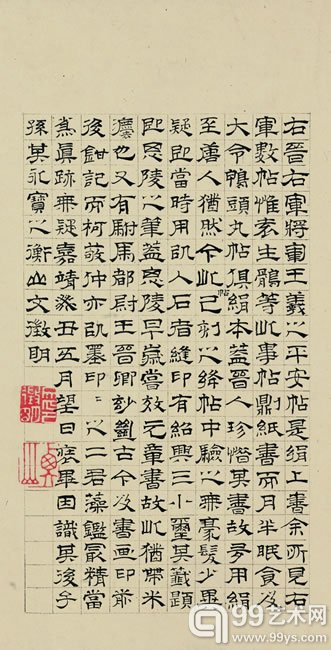 右晉右軍將軍王羲之平安帖是絹上書余所見右
軍數帖惟袁生鶻等此事帖紙書而月半眠食及
大令鴨頭丸帖俱絹本蓋晉人珍惜其書故多用絹
至唐人猶然今此帖已刻之絳帖中驗之無毫髮少異
疑即當時用以入石者縫印有紹興三小璽其籤題
即思陵之筆蓋思陵早歲嘗效元章書故此猶帶米
也又有駙馬都尉王晉卿劉古今及書画印前
後鉗記而柯敬仲亦以墨印印之二君藻鑑最精當
為真跡無疑嘉靖癸丑五月望日裝畢因識其後子
孫其永寶之衡山文徵明
99艺术网
www.99ys.com